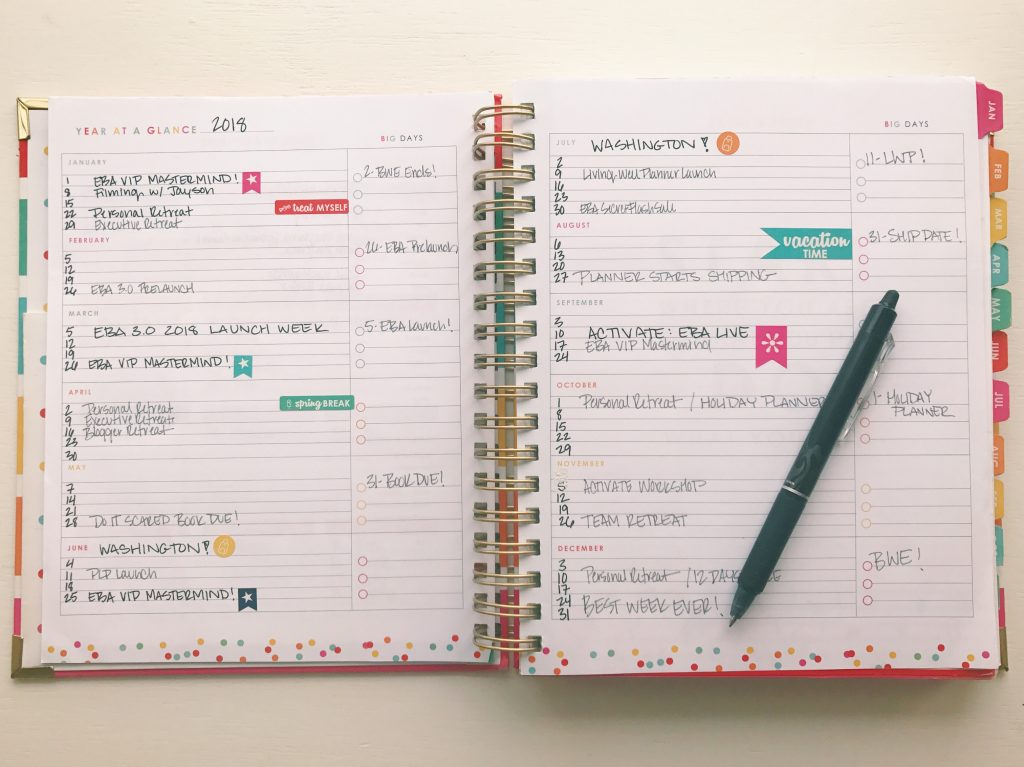 YEAR AT A GLANCE 2018
BIG DAYS
JANUARY
1 EBA VIP MASTERMIND!
8 Filming w/ Jayson
15
treat MYSELF
22 Personal Retreat
29 Executive Retreat
2-BWE Ends!
FEBRUARY
5
12
19
26 EBA 3.0 PRELAUNCH
26-EBA Prelaunch
MARCH
5 EBA 3.0 2018 LAUNCH WEEK
12
19
26 EBA VIP MASTERMIND!
5-EBA Launch!
APRIL
spring BREAK
2 Personal Retreat
9 Executive Retreat
16 Blogger Retreat
23
30
MAY
7
14
21
28 DO IT SCARED BOOK DUE!
31-BOOK DUE!
JUNE WASHINGTON!
4
11 PLP Launch
18
25 EBA VIP MASTERMIND!
BIG DAYS
JULY WASHINGTON!
2
9 Living Well Planner Launch
16
23
30 EBA Secret Flash Sale
11-LWP!
AUGUST
6
13
vacation
TIME
20
27 PLANNER STARTS SHIPPING
31-SHIP DATE!
SEPTEMBER
3
10 ACTIVATE: EBA LIVE
17 EBA VIP Mastermind
24
OCTOBER
1 Personal Retreat / HOLIDAY PLANNER
8
15
22
29
1-HOLIDAY
PLANNER
NOVEMBER
5 ACTIVATE WORKSHOP
12
19
26 TEAM RETREAT
DECEMBER
3
10 Personal Retreat / 12 DAYS
17
24 BEST WEEK EVER!
31
BWE!
JAN
FEB
MAR
APR
MAY
JUN
JUL
AUG